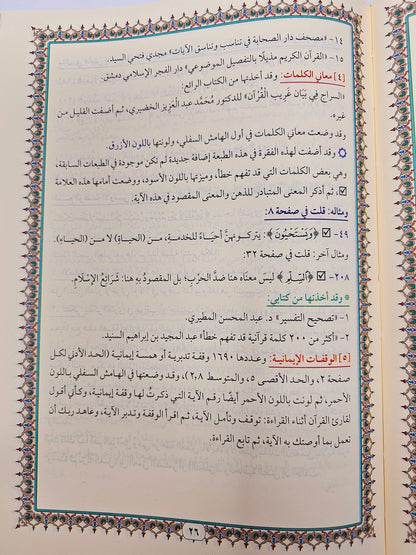 ١٤- «مصحف دار الصحابة في تناسب وتناسق الآيات» مجدي فتحي السيد.
١٥- «القرآن الكريم مذيلًا بالتفصيل الموضوعي» دار الفجر الإسلامي دمشق.
[٤] معاني الكلمات: وقد أخذتها من الكتاب الرائع:
«السراج فِي بَيَان غَرِيب القُرْآن» للدكتور مُحَمَّد عبد العزيز الخضيري، ثم أضفت القليل من
غيره.
وقد وضعت معاني الكلمات في أول الهامش السفلي، ولونتها باللون الأزرق.
وقد أضفت لهذه الفقرة في هذه الطبعة إضافة جديدة لم تكن موجودة في الطبعات السابقة،
وهي بعض الكلمات التي قد تفهم خطأ، وميزتها باللون الأسود، ووضعت أمامها هذه العلامة
☑، ثم أذكر المعنى المتبادر للذهن والمعنى المقصود في هذه الآية.
ومثاله: قلت في صفحة ٨:
٤٩- ☑ ﴿وَيَسْتَحْيُونَ﴾: يتركونهنَّ أحيَاءً للخدمةِ، من (الحياةِ) لا من (الحياءِ).
ومثال آخر: قلت في صفحة ٣٢:
٢٠٨- ☑ ﴿السِّلْمِ﴾ ليسَ معنَاه هنا ضدَّ الحربِ؛ بل المقصودُ بِهِ هنَا: شَرَائِعُ الإسْلَامِ.
* وقد أخذتها من كتابي:
١- «تصحيح التفسير» د. عبد المحسن المطيري.
٢- «أكثر من ٢٠٠ كلمة قرآنية قد تفهم خطأ» عبد المجيد بن إبراهيم السنيد.
[٥] الوقفات الإيمانية: وعددها ١٦٩٠ وقفة تدبرية أو همسة إيمانية (الحد الأدنى لكل
صفحة ٢، والحد الأقصى ٥، والمتوسط ٢,٨)، وقد وضعتها في الهامش السفلي باللون
الأحمر، ثم لونت باللون الأحمر أيضًا رقم الآية التي ذكرتُ لها وقفة إيمانية، وكأني أقول
لقارئ القرآن أثناء القراءة: توقف وتأمل الآية، ثم اقرأ الوقفة وتدبر الآية، وعاهد ربك أن
تعمل بما أوصتك به الآية، ثم تابع القراءة.
٢٦